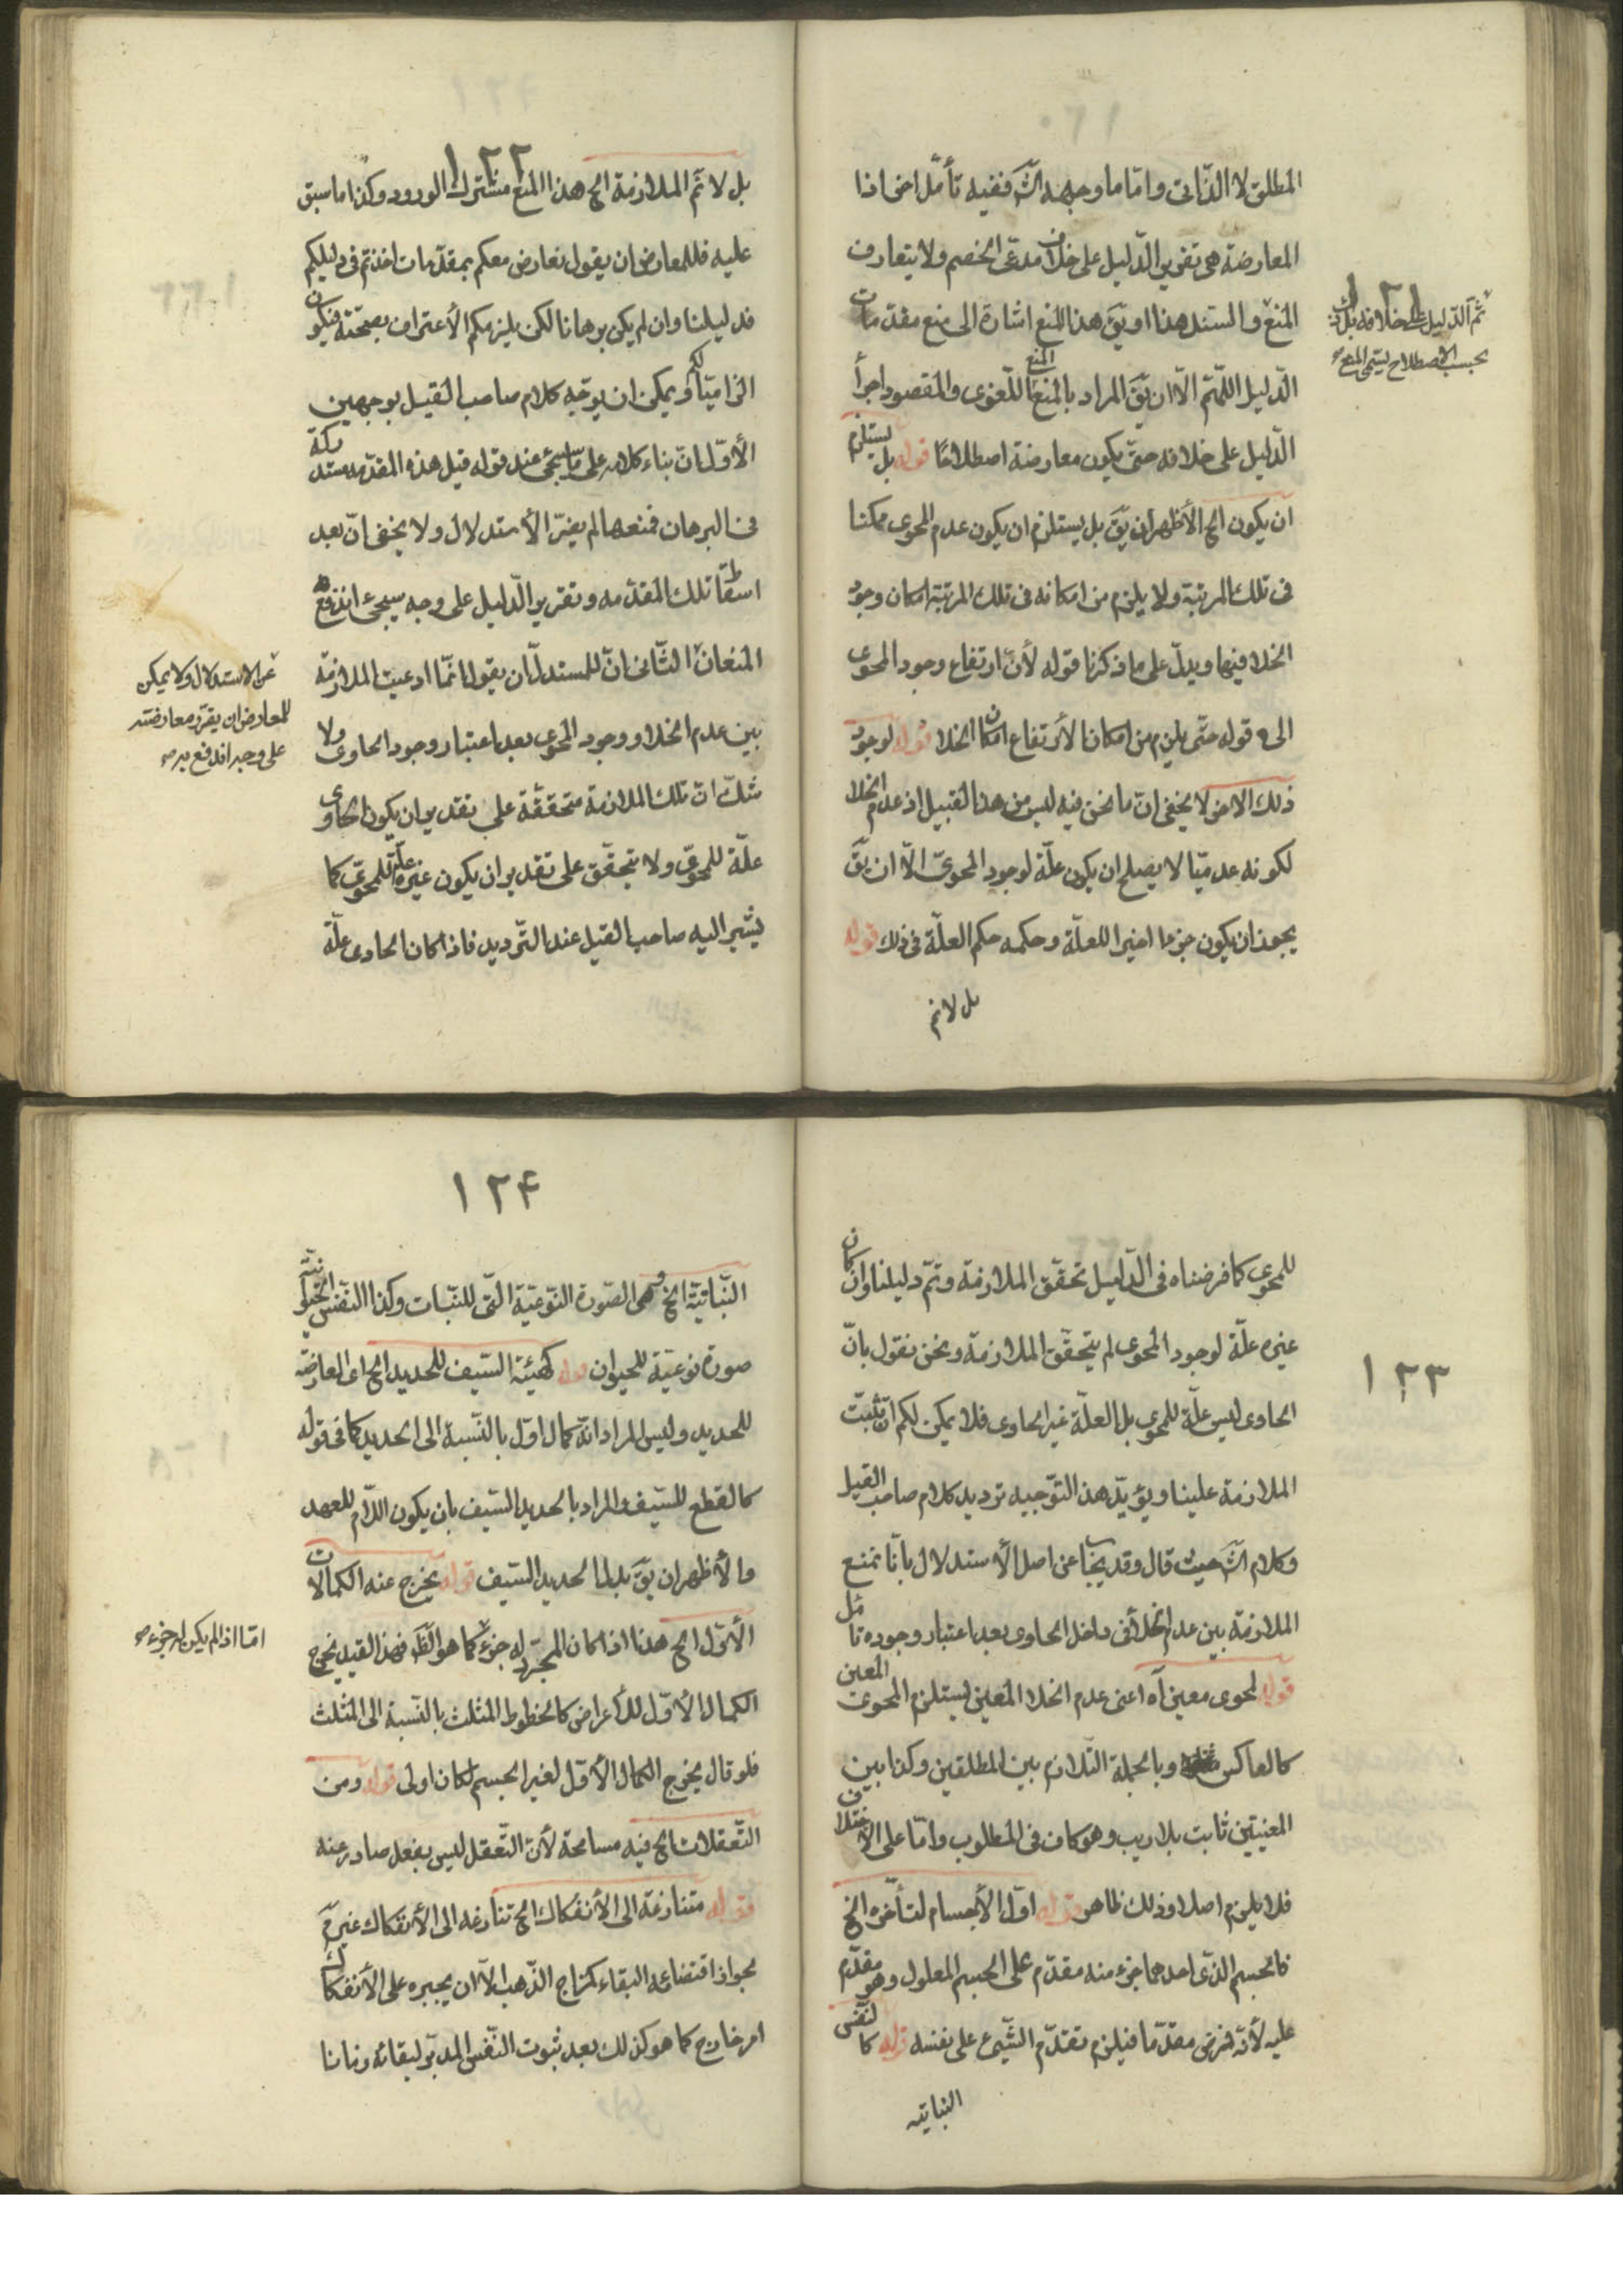 المطلق لا الذّاتى وامّا ما وجهه الشَ ففيه تأمّل اخر اذا
المعارضة هى تقرير الدّليل على خلاف مدعّى الخصم ولا يتعارف
المنع والسّند هنا او يقَ هذا المنع اشارة الى منع مقدّمات
الدّليل اللمّتم الّا ان يقَ المراد بالمنع المنع اللّغوى والمقصود اجرأ
الدّليل على خلافه حتّى يكون معارضة اصطلاحًا قوله بل يستلزم
ان يكون الخ الأظهر ان يقَ بل يستلزم ان يكون عدم المحوى ممكنا
فى تلك المرتبة ولا يلزم من امكانه فى تلك المرتبة امكان وجود
الخلا فيها ويدلّ على ما ذكرنا قوله لأنّ ارتفاع وجود المحوى
الى قوله حتّى يلزم من امكان الأرتفاع امكان الخلا قوله لوجود
ذلك الامر لا يخفى انّ ما نحن فيه ليس من هذا القبيل اذ عدم الخلا
لكونه عدميّا لا يصلح ان يكون علّة لوجود المحوىّ الّا ان يقَ
يجوز ان يكون جزءا اخيرا للعلّة وحكمه حكم العلّة فى ذلك قوله
بل لانم
ثمّ الدّليل على خلافه بل ذلك
بحسب الاصطلاح يسمّى المنع صح
١٢٢
بل لا تمَ الملازمة الخ هذا المنع مشترك الورود وكذا ما سبق
عليه فللمعارض ان يقول نعارض معكم بمقدّمات اخذتم فى دليلكم
فدليلنا وان لم يكن برهانا لكن يلزمكم الأعتراف بصحّته فيكون
الزاميّا لكم ويمكن ان يوجّه كلام صاحب القيل بوجهين
الأوّل انّ بناء كلامه على ما سيجئ عند قوله قيل هذه المقدّمة مستدركة
فى البرهان فمنعها لم يضرّ الأستدلال ولا يخفى انّ بعد
اسقاط تلك المقدّمه وتقرير الدّليل على وجه سيجئ اندفع
المنعان الثّانى انّ للمستدلّ ان يقول انّما ادعيت الملازمة
بين عدم الخلا ووجود المحوى بعد اعتبار وجود الحاوى ولا
شكّ انّ تلك الملازمة متحققّة على تقدير ان يكون الحاوى
علّة للمحوىّ ولا يتحقّق على تقدير ان يكون غيره علّة للمحوىّ كما
يشير اليه صاحب القيل عند التّرديد فاذا كان الحاوى علّة
عن الاستدلال ولا يمكن
للمعارض ان يقرّر معارضته
على وجه اندفع به صح
١٢٣
للمحوى كما فرضناه فى الدّليل تحقّق الملازمة وتمّ دليلنا وان كان
غيره علّة لوجود المحوى لم يتحقّق الملازمة ونحن نقول بانّ
الحاوى ليس علّة للمحوى بل العلّة غير الحاوى فلا يمكن لكم ان تثبت
الملازمة علينا ويؤيّد هذا التّوجيه ترديد كلام صاحب القيل
وكلام الشَ حيث قال وقد يجاب عن اصل الأستدلال بانّا نمنع
الملازمة بين عدم الخلا فى داخل الحاوى بعد اعتبار وجوده تامّل
قوله لمحوى معين آه اعنى عدم الخلا المعين يستلزم المحوى المعين
كالعاكس وبالجملة التّلازم بين المطلقين وكذا بين
المعنيين ثابت بلا ريب وهو كاف فى المطلوب وامّا على الاختلاف
فلا يلزم اصلا وذلك ظاهر قوله اوّل الأجسام لتأخّره الخ
فالجسم الذّى احدهما جزء منه مقدّم على الجسم المعلول وهو مقدّم
عليه لأنّه فرض مقدّما فيلزم تقدّم الشّيئ على نفسه قوله كالنّفس
النباتيه
١٢۴
النّباتيّة الخ وهى الصّورة النّوعيّة الّتى للنّبات وكذا النّفس الحيوانيّة
صورة نوعيّة للحيوان قوله كهيئة السّيف للحديد الخ اى العارضة
للحديد وليس المراد انّه كمال اوّل بالنّسبة الى الحديد كما فى قوله
كالقطع للسّيف والمراد بالحديد السّيف بان يكون اللّام للعهد
والأظهر ان يقَ بدل الحديد السّيف قوله يخرج عنه الكمالات
الأوّل الخ هذا اذا كان المجرّد له جزء كما هو الظَ فهذا القيد يخرج
الكمال الأوّل للأعراض كالخطوط المثلث بالنّسبة الى المثلث
فلو قال يخرج الكمال الأوّل لغير الجسم لكان اولى قوله ومن
التّعقلات الخ فيه مسامحة لأنّ التّعقل ليس بفعل صادر عنه
قوله متنازعة الى الأنفكاك الخ تنازعه الى الأنفكاك غير مَ
لجواز اقتضائه البقاء كمزاج الذّهب الّا ان يجبره على الأنفكاك
امر خارج كما هو كذلك بعد ثبوت النّفس المدبّر لبقائه زمانا
امّا اذا لم يكن له جزء صح